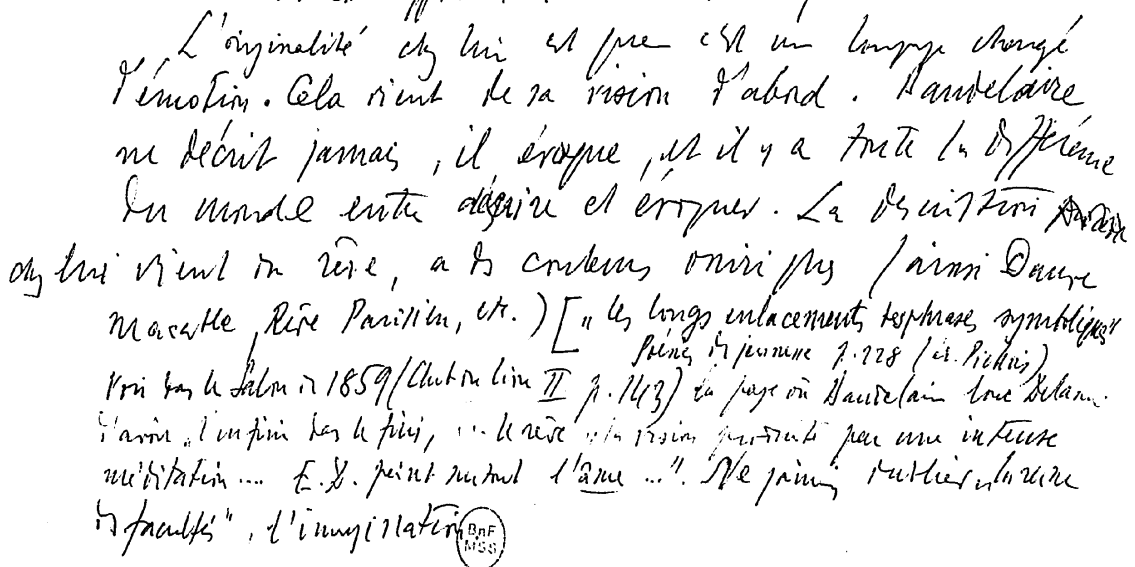 L'originalité chez lui est que c'est un langage changé
d'émotion. Cela vient de sa vision d'abord. Baudelaire
ne décrit jamais, il évoque, et il y a toute la différence
du monde entre décrire et évoquer. La description
chez lui vient du rêve, a des contenus oniriques (ainsi Danse
macabre, Rêve Parisien, etc.) [ "les longs enlacements des phrases symboliques"
Poésies de jeunesse p. 228 (éd. Pichois)
Voir dans le Salon de 1859 (Club du livre II p. 143) la page où Baudelaire loue Delacr.
d'avoir "l'infini dans le fini, ... le rêve la vision produite par une intense
méditation .... E. D. peint surtout l'âme ...". Ne jamais oublier "la reine
des facultés", l'imagination
BnF
MSS